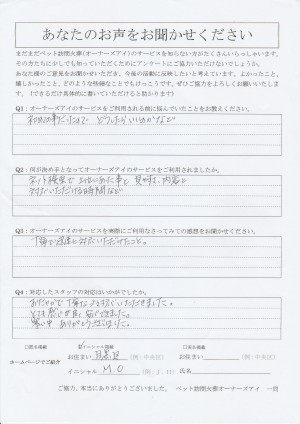 あなたのお声をお聞かせください
まだまだペット訪問火葬(オーナーズアイ)のサービスを知らない方がたくさんいらっしゃいます。
そのかたにも少しでも知っていただくためにアンケートにご協力いただけないでしょうか。
あなた様のご意見をお聞かせいただき、今後の活動に反映したいと考えています。よかったこと、
嬉しかったこと、どのような些細なことでもけっこうです。ぜひご協力をよろしくお願いいたします。
(できるだけ具体的に書いていただけると助かります)
Q1：オーナーズアイのサービスをご利用される前に悩んでいたことをお教えください。
初めての事だったので どうしたらいいのかなど
Q2：何が決め手となってオーナーズアイのサービスをご利用されましたか。
ネット検索で 上位にあった事と
対応いただける時間など
Q3：オーナーズアイのサービスを実際にご利用なさってみての感想をお聞かせください。
丁寧で迅速に対応いただけたこと。
Q4：対応したスタッフの対応はいかがでしたか。
おだやかで丁寧な
とても
暑い中 ありがとうございました。
□匿名掲載 ☑イニシャル掲載 □実名掲載
ホームページでご紹介
お住まい 目黒区 (例：中央区) お住まい (例：中央区)
イニシャル M.O (例：J.H) 氏名
ご協力、本当にありがとうございました。 ペット訪問火葬オーナーズアイ 一同